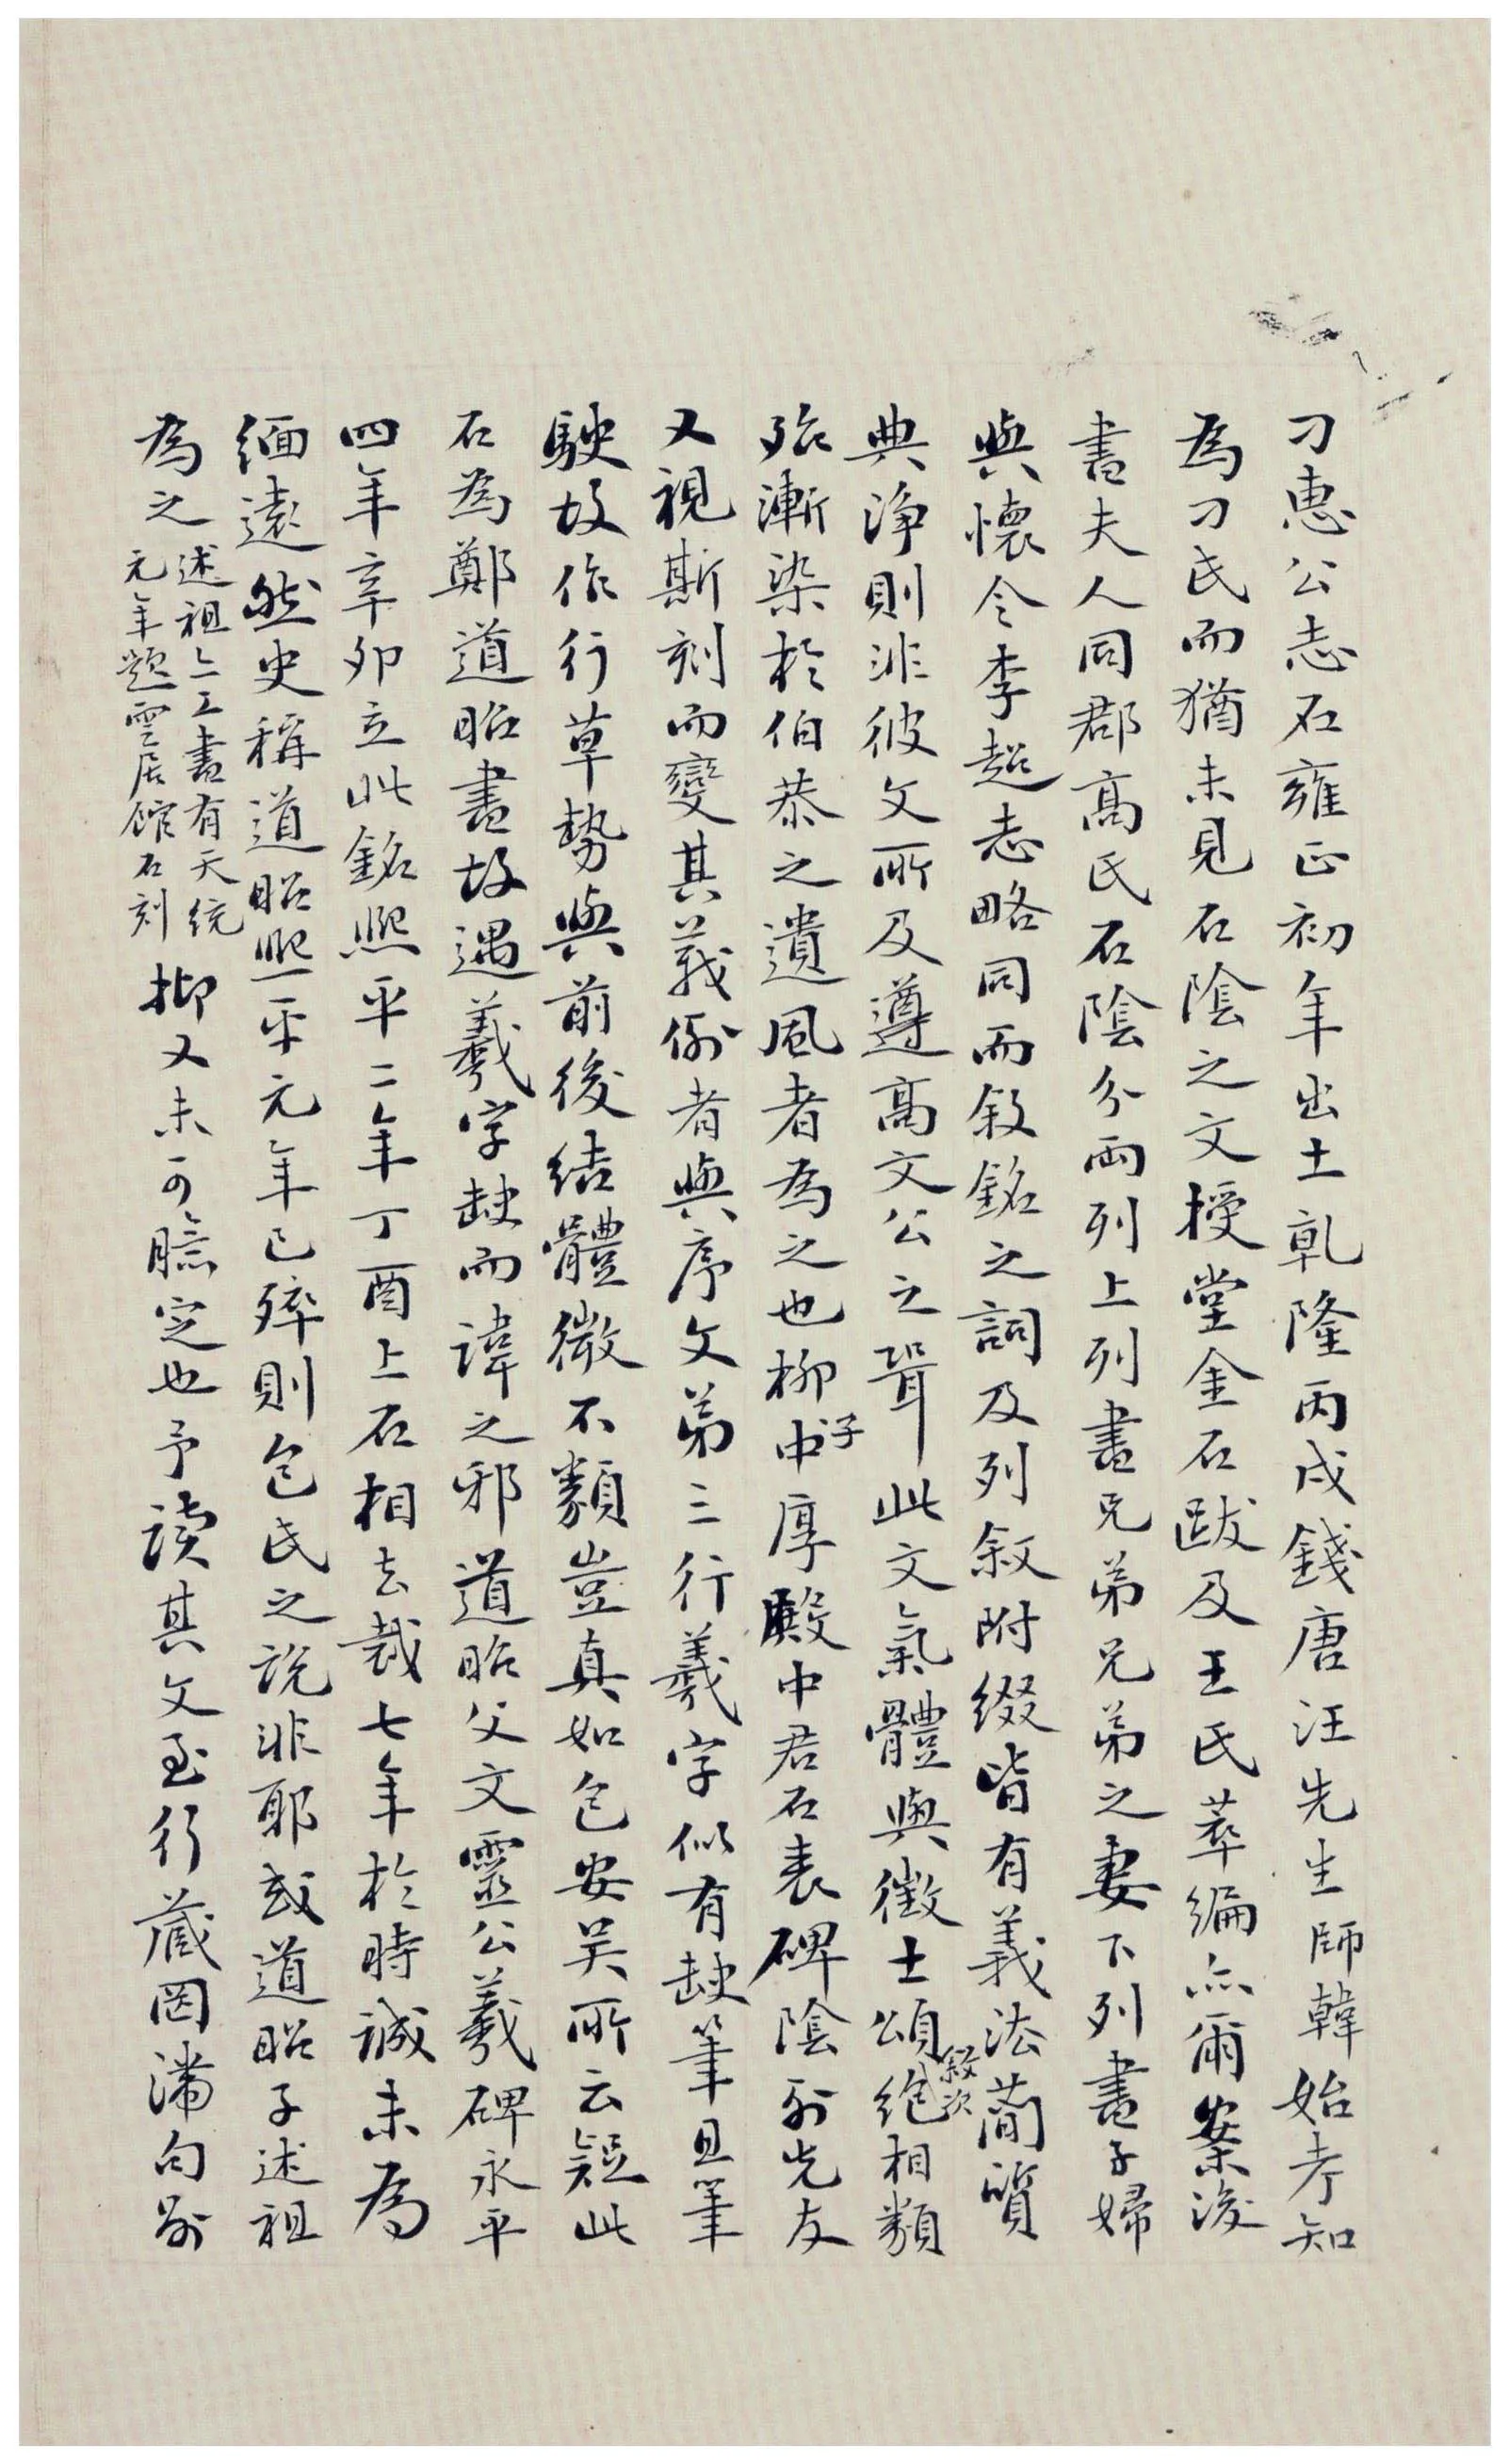 刁惠公志石雍正初年出土乹隆丙戌錢唐汪先生師韓始考知
為刁氏而猶未見石陰之文授堂金石跋及王氏萃編亦爾案後
書夫人同郡高氏石陰分兩列上列書兄弟兄弟之妻下列書子婦
與懷令李超志略同而敘銘之詞及列敘附綴皆有義法敘次蕑質
典淨則非彼文所及遵高文公之聟此文氣體與徵士頌絕相類
殆漸染於伯恭之遺風者為之也柳子中厚殿中君石表碑陰列先友
又視斯刻而變其義例者與序文弟三行羲字似有缺筆且筆
駛故作行草勢與前後結體微不類豈真如包安吴所云疑此
石為鄭道昭書故遇羲字缺而諱之邪道昭父文靈公羲碑永平
四年辛卯立此銘熙平二年丁酉上石相去裁七年於時誠未為
緬遠然史稱道昭熙平元年已殁則包氏之說非耶或道昭子述祖
為之述祖亦工書有天統
元年題雲居館石刻抑又未可臆定也予讀其文至行藏罔滞句別